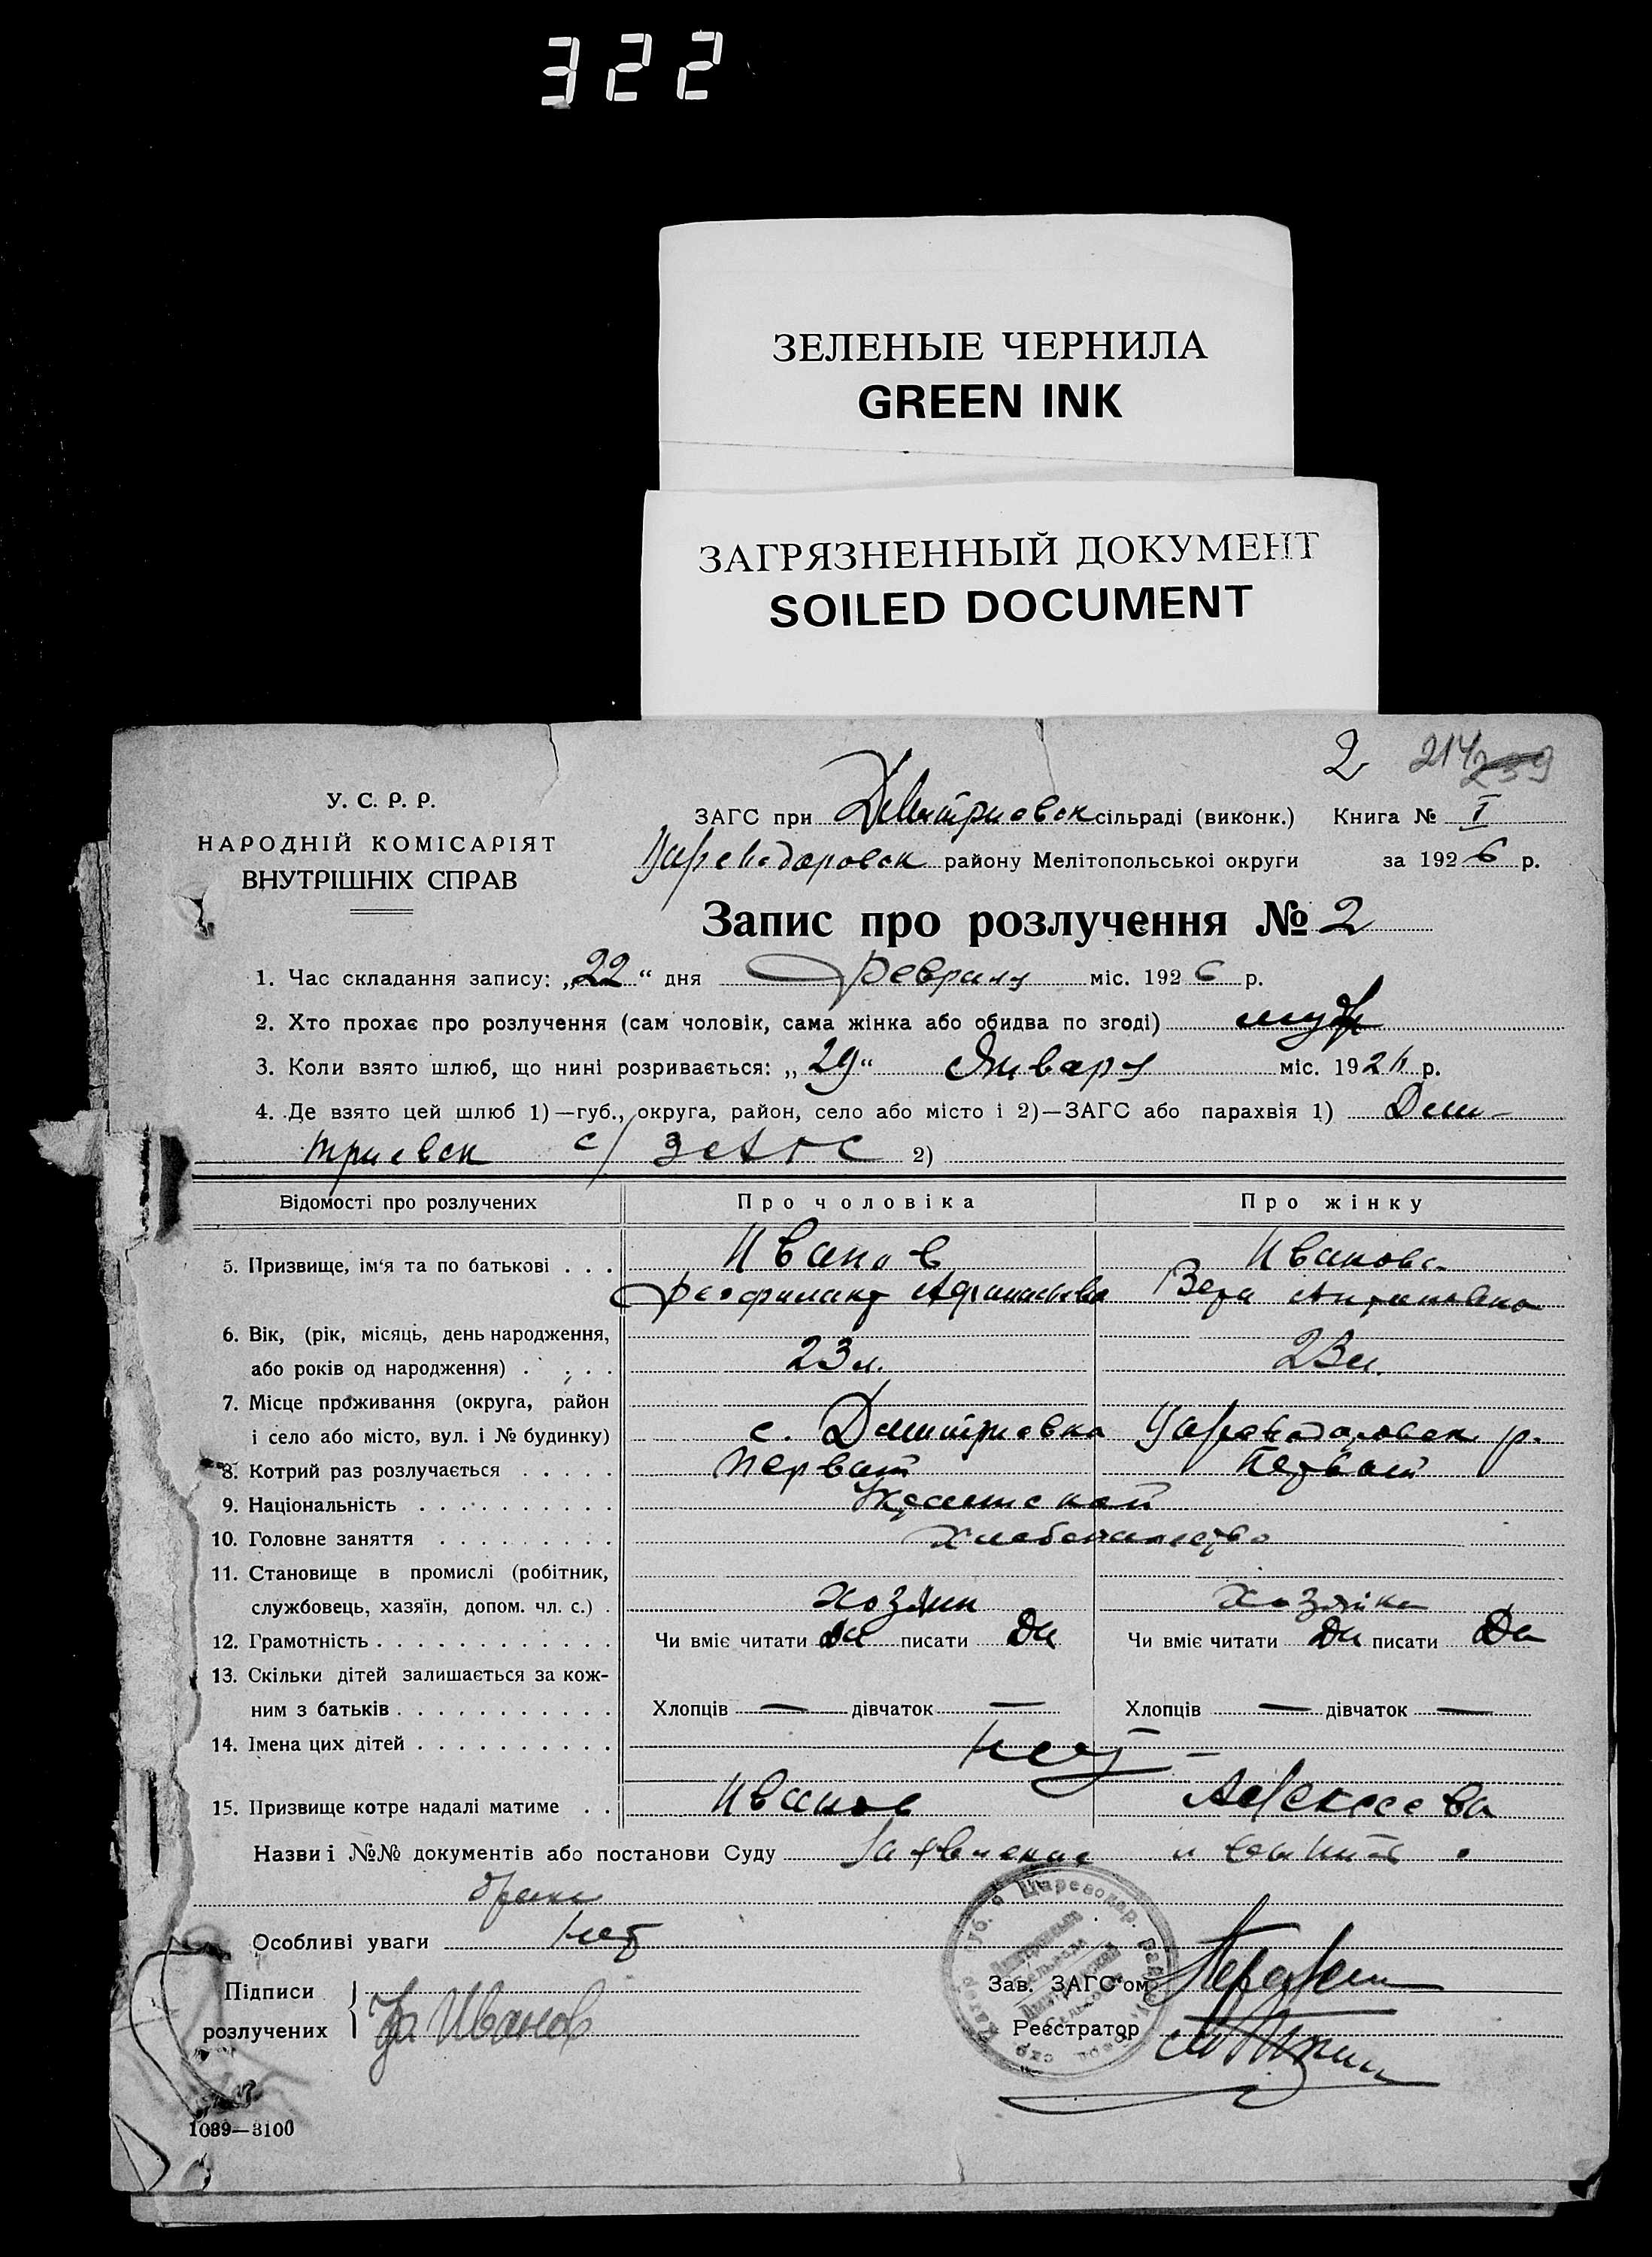 322
ЗЕЛЕНЫЕ ЧЕРНИЛА
GREEN INK
ЗАГРЯЗНЕННЫЙ ДОКУМЕНТ
SOILED DOCUMENT
2 214 239
У. С. Р. Р.
НАРОДНІЙ КОМІСАРІЯТ
ВНУТРІШНІХ СПРАВ
ЗАГС при Дмитриевск сільраді (виконк.) Книга № I
Цареводаровск району Мелітопольської округи за 1926 р.
Запис про розлучення № 2
1. Час складання запису: „22“ дня Февраля міс. 1926 р.
2. Хто прохає про розлучення (сам чоловік, сама жінка або обидва по згоді) муж
3. Коли взято шлюб, що нині розривається: „29“ Января міс. 192 р.
4. Де взято цей шлюб 1)—губ., округа, район, село або місто і 2)—ЗАГС або парахвія 1) Дми-
триевск с/ 2)
Відомості про розлучених Про чоловіка Про жінку
5. Призвище, ім‘я та по батькові . . . Иванов Иванова
Феофилакт Вера
6. Вік, (рік, місяць, день народження,
або років од народження) . . . . 23 л. 23 л.
7. Місце проживання (округа, район
і село або місто, вул. і № будинку) с. Дмитриевка Цареводаровск р.
8. Котрий раз розлучається . . . . . Первый Первый
9. Національність . . . . . . . . . .
10. Головне заняття . . . . . . . . . хлебопашество
11. Становище в промислі (робітник,
службовець, хазяїн, допом. чл. с.) . хозяин хозяйка
12. Грамотність . . . . . . . . . . . . Чи вміє читати Да писати Да Чи вміє читати Да писати Да
13. Скільки дітей залишається за кож-
ним з батьків . . . . . . . . . . . Хлопців — дівчаток — Хлопців — дівчаток —
14. Імена цих дітей . . . . . . . . . . Нет
15. Призвище котре надалі матиме . . Иванов Алексеева
Назви і №№ документів або постанови Суду Заявление и
браке
Особливі уваги Нет
Підписи
розлучених
Иванов
Зав. ЗАГС‘ом
Реєстратор
1089—3100